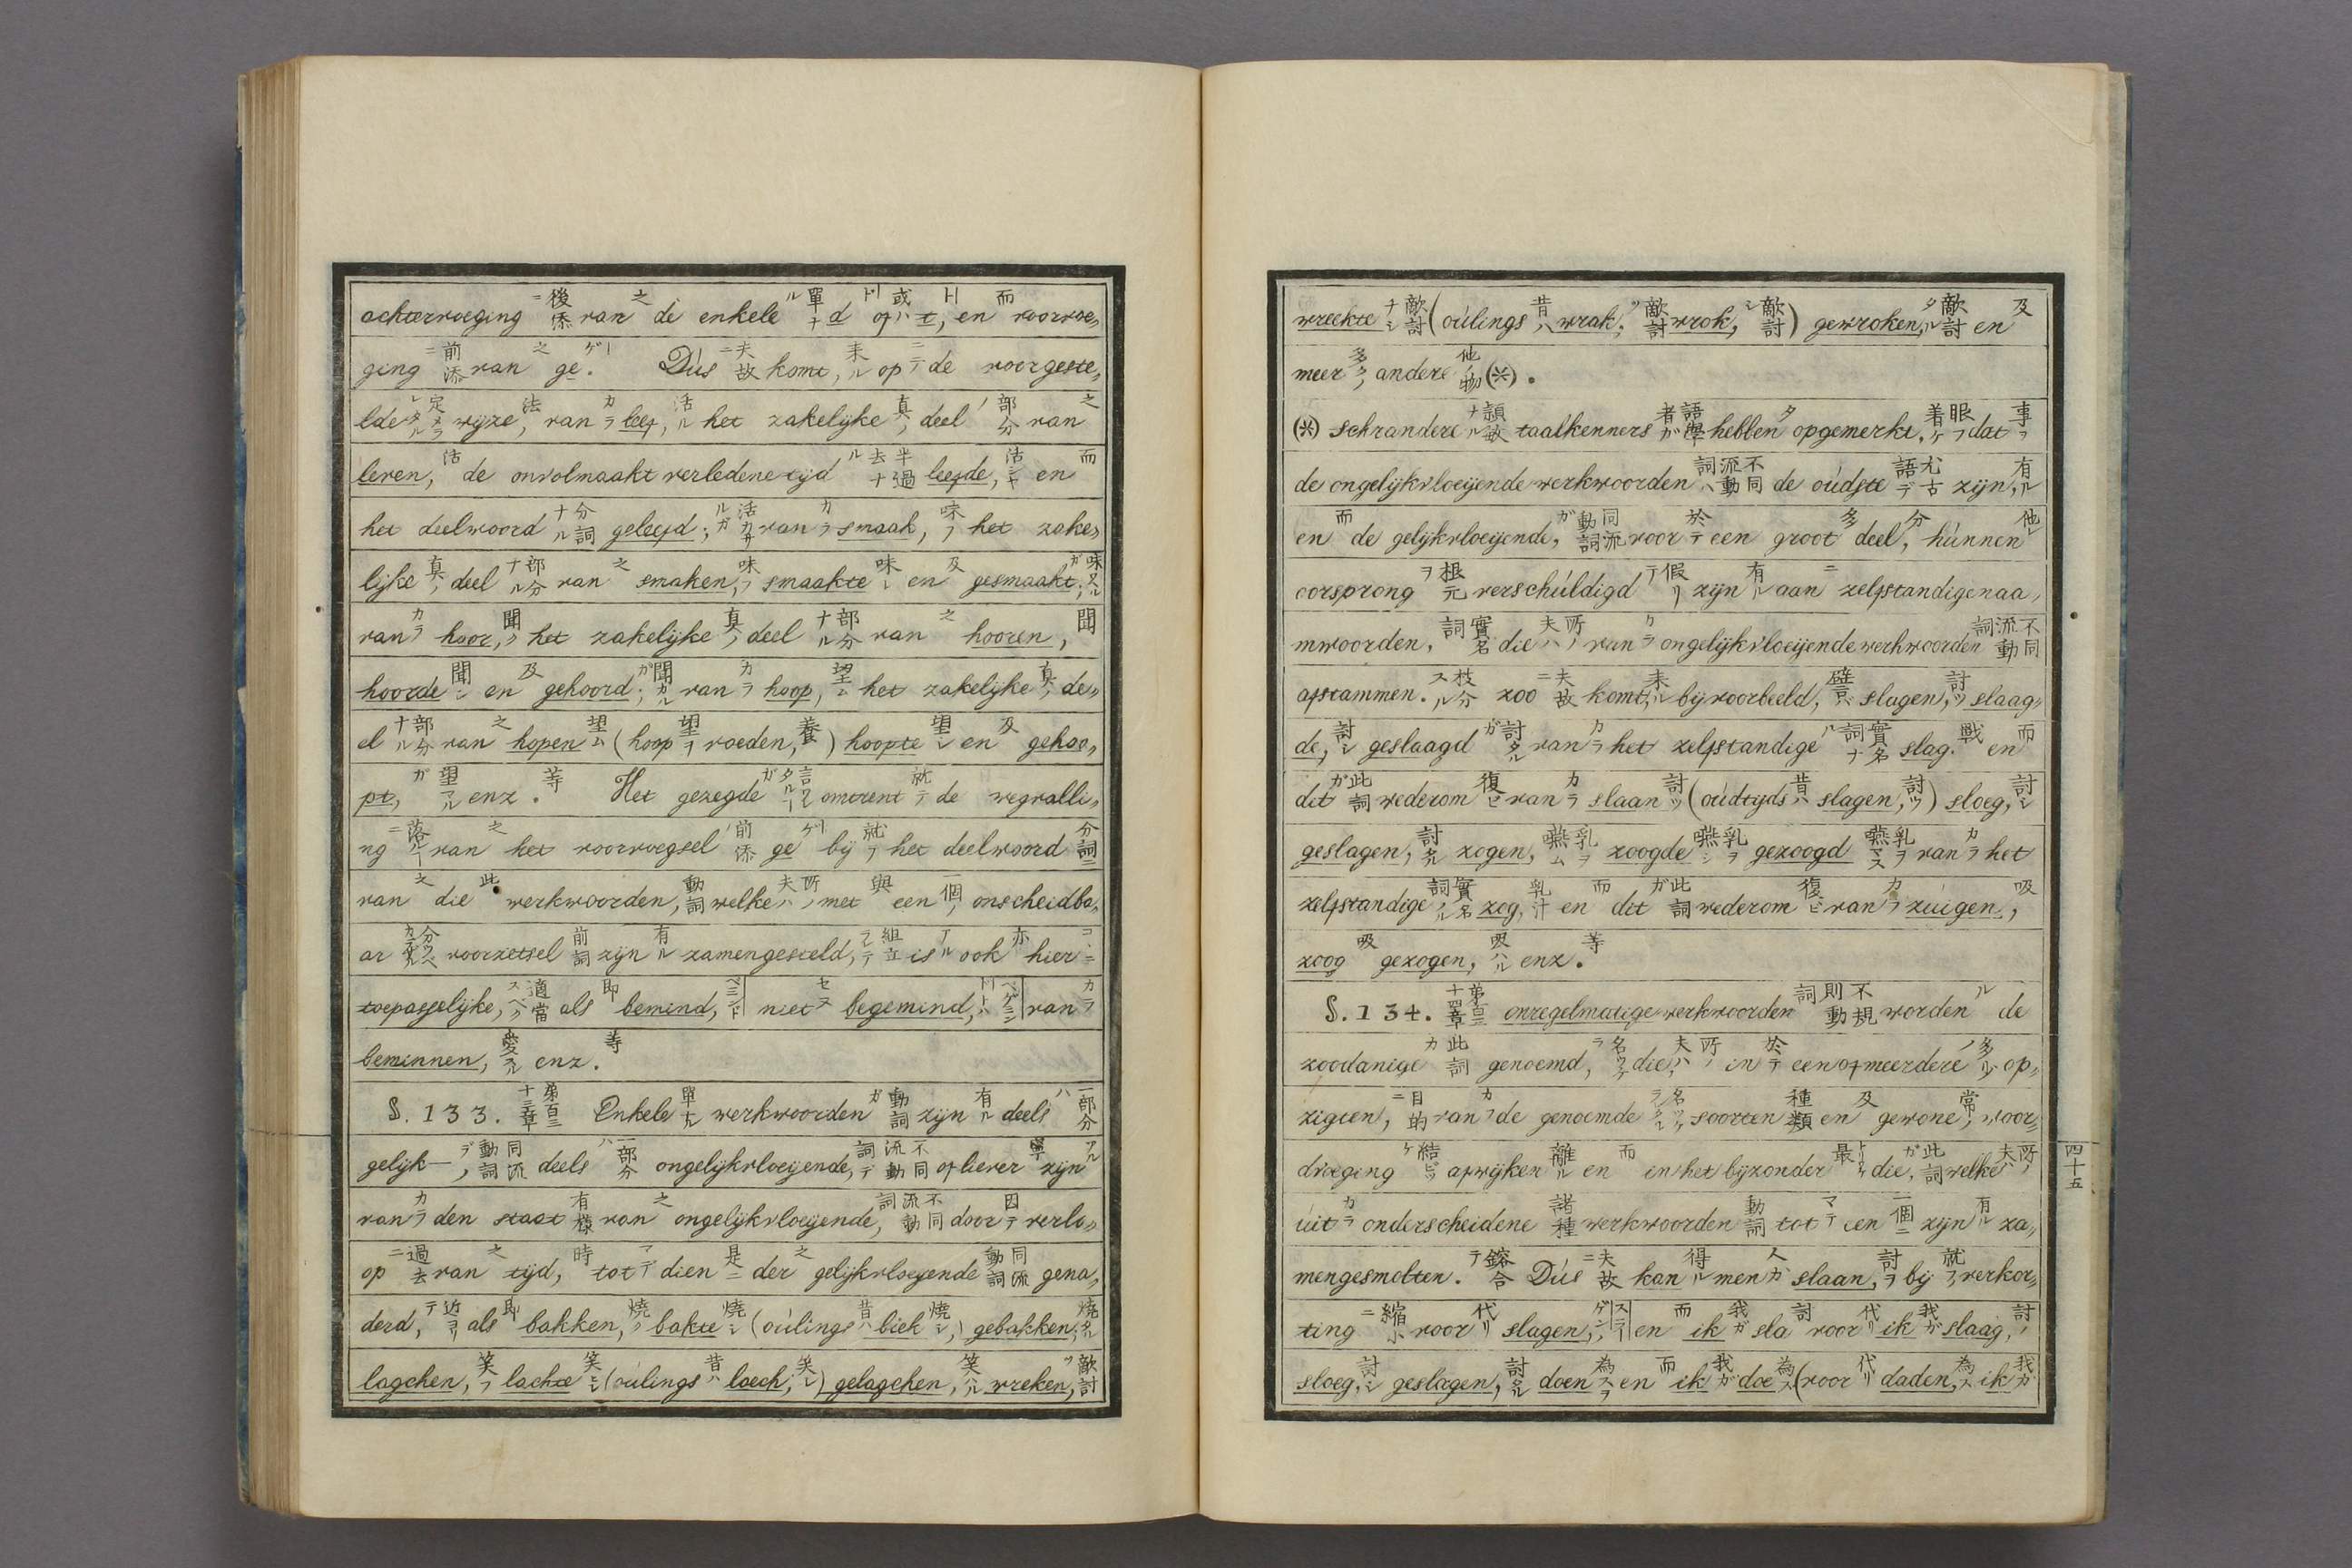 achtervoeging 後添 van 之 de enkele 單ナル d ド or ハ 或 t, ト en 而 voorvoe,
ging 前添ニ van 之 ge. ゲー Dus 夫故ニ komt, 来ル op ニテ de voorgeste,
lde 定メラレタル wijze, 法 van カラ leef, 活ル het zakelijke 真ノ deel 部分ノ van 之
leven, 活 de onvolmaakt verledene tijd 半過去ナル leefde, 活シナ en 而
het deelwoord 分詞ナル geleefd; van カラ smaak, 味フ het zake,
lijke 真ノ deel 部分ナル van 之 smaken, 味フ smaakte 味シ en 及 gesmaakt;
van カラ hoor, 聞ク het zakelijke 真ノ deel 部分ナル van 之 hooren, 聞
hoorde 聞シ en 及 gehoord; van カラ hoop, 望ム het zakelijke 真ノ de,
el 部分ナル van 之 hopen 望ム (hoop 望ヲ voeden, 養) hoopte 望シ en 及 gehoo,
pt, enz. 等 Het gezegde omtrent 就テ de wegvalli,
ng van 之 het voorvoegsel 前添 ge ゲー bij 就 het deelwoord 分詞
van 之 die 此 werkwoorden, 動詞 welke 夫所ノハ met 與 een 一個ノ onscheidba,
ar voorzetsel 前詞 zijn 有ル zamengesteld, 組立 is アル ook 亦 hier
toepasselijke, 適當スベク als 即 bemind, ベミンド niet セヌ begemind, van カラ
beminnen, 愛スル enz. 等
§. 133. 第百三十三章 Enkele 單ナル werkwoorden 動詞ガ zijn 有ル deels 一部分ハ
gelijk— 同流動詞デ deels 一部分ハ ongelijkvloeijende, 不同流動詞デ of liever 寧 zijn アル
van カラ den staat 有様 van 之 ongelijkvloeijende, 不同流動詞 door 因テ verlo,
op 過去ニ van 之 tijd, 時 tot マデ dien 是ニ der 之 gelijkvloeijende 同流動詞 gena,
derd, 近ヨリテ als 即 bakken, 燒ク bakte 燒シ (oulings 昔ハ biek 燒シ,) gebakken; 燒タル
lagchen, 笑フ lachte 笑シ (oulings 昔ハ loech, 笑シ) gelagchen, 笑ハル wreken, 敵討ツ
wreekte 敵討ナシ (oulings 昔ハ wrak; 敵討ツ wrok, 敵討シ) gewroken, 敵討タル en 及
meer 多ク andere 他ノ物 (※).
(※) schrandere 穎敏ナル taalkenners 語學者ガ hebben タ opgemerkt, 着眼ケ dat 事ヲ
de ongelijkvloeijende werkwoorden 不同流動詞ハ de oudste 尤古語デ zijn, 有ル
en 而 de gelijkvloeijende, 同流動詞ガ voor 於テ een groot 多 deel, 分 hunnen 他レ
oorsprong 根元ヲ verschuldigd 假リテ zijn 有ル aan ニ zelfstandigenaa,
mwoorden, 實名詞 die 夫所ノハ van カラ ongelijkvloeijende werkwoorden 不同流動詞
afstammen. 枝分スル zoo 夫故ニ komt, 来ル bij voorbeeld, 譬ハ slagen, 討ツ slaag,
de, 討シ geslaagd 討タルガ van カラ het zelfstandige 實名詞ナル slag. 戰 en 而
dit 此詞ガ wederom 復ビ van カラ slaan 討ツ (oudtijds 昔ハ slagen, 討ツ) sloeg, 討シ
geslagen, 討タル zogen, 乳ヲ嚥ム zoogde 乳ヲ嚥シ gezoogd 乳ヲ嚥マス van カラ het
zelfstandige 實名詞ノル zog, 乳汁 en 而 dit 此詞ガ wederom 復ビ van カラ zuigen, 吸
zoog 吸 gezogen, 吸ハル enz. 等
§. 134. 第百三十四章 onregelmatige werkwoorden 不規則動詞 worden ル de
zoodanige 此詞カ genoemd, 名ケラ die, 夫所ノハ in 於テ een of meerdere 多 op,
zigten, 目的ニ van カ de genoemde 名ツケラレタル soorten 種類 en 及 gewone, 常ノ voor,
dragting afwijken 離ル en 而 in het bijzonder 最 die, 此詞ガ welke 夫所ノハ
uit カラ onderscheidene 諸種 werkwoorden 動詞 tot マテ een 一個ニ zijn 有ル za,
mengesmolten. 鎔合テ Dus 夫故ニ kan 得ル men 人ガ slaan, 討ヲ bij 就 verkor,
ting 縮小ニ voor 代リ slagen, スラーゲン en 而 ik 我ガ sla 討 voor 代リ ik 我ガ slaag, 討
sloeg, 討シ geslagen, 討タル doen 為ス en 而 ik 我ガ doe 為ス (voor 代リ daden, 為ス ik 我ガ
四十五